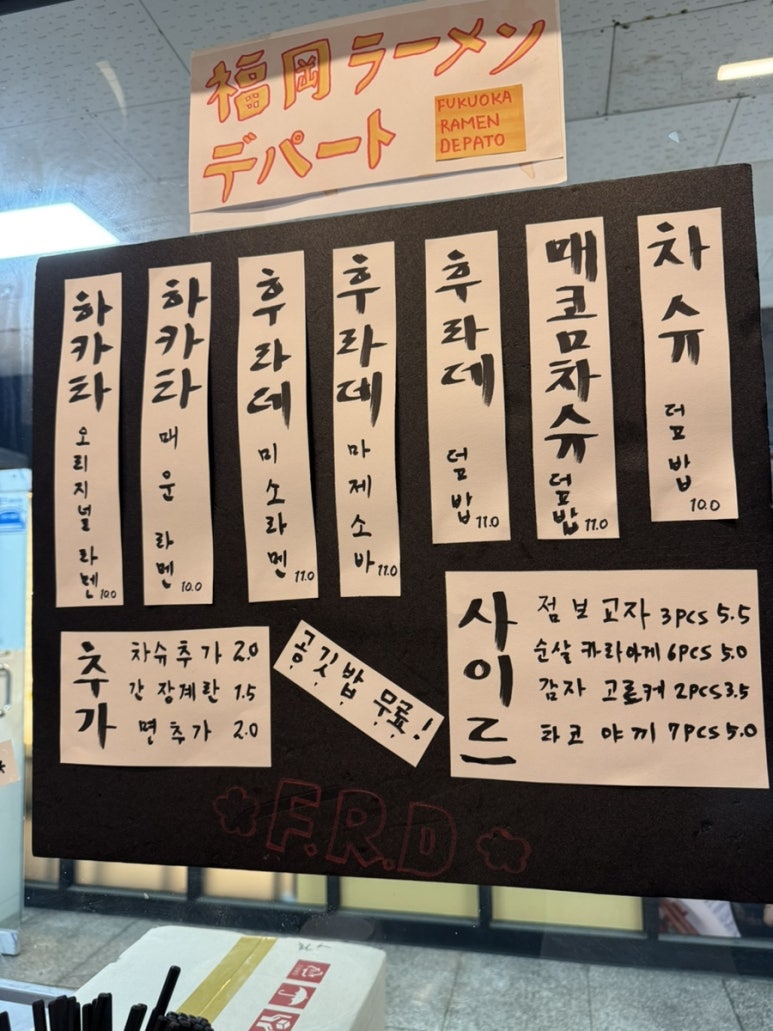 福岡ラーメン
デパート
FUKUOKA
RAMEN
DEPATO
하카타 오리지널 라멘 10.0
하카타 매운 라멘 10.0
후라데 미소라멘 11.0
후라데 마제소바 11.0
후라데 덮밥 11.0
매코므차슈덮밥 11.0
차슈 덮밥 10.0
추가
차슈추가 2.0
간장계란 1.5
면추가 2.0
공깃밥 무료!
사이드
점보교자 3PCS 5.5
순살 카라아게 6PCS 5.0
감자 고로케 2PCS 3.5
타코야끼 7PCS 5.0
*F.R.D*